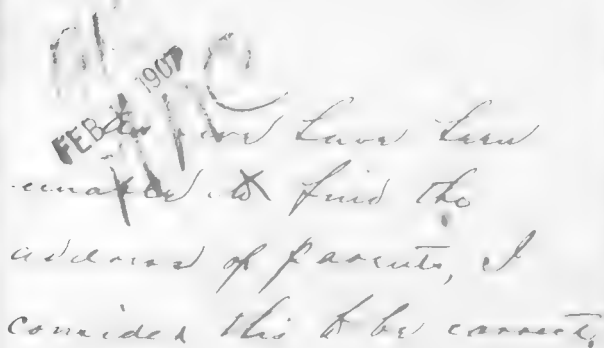 FEB 1907
we have been
unable to find the
address of parents, I
consider this to be correct.